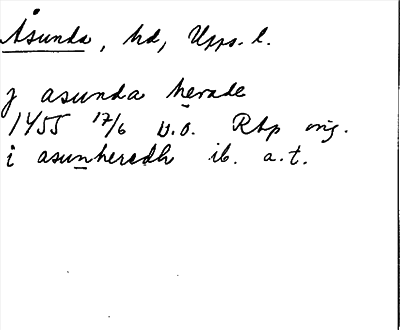 Åsunda, hd, Upps. l.
j asunda herade
1455 17/6 U.O. Rap orig.
i asunheredh ib. a.t.